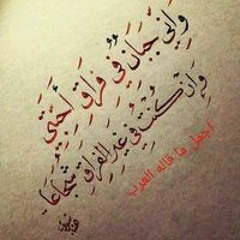 وَإِنّي جَبَانٌ في فِرَاقِ أَحِبَّتي
وَإِنْ كُنْتُ في غَيرِ الفِراقِ شُجَاعَا
اجمل ما قاله العرب